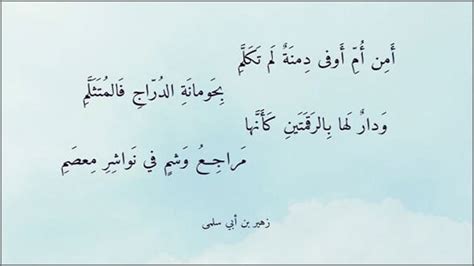 أَمِن أُمِّ أَوفى دِمنَةٌ لَم تَكَلَّمِ
بِحَومانَةِ الدُرّاجِ فَالمُتَثَلَّمِ
وَدارٌ لَها بِالرَقمَتَينِ كَأَنَّها
مَراجِعُ وَشمٍ في نَواشِرِ مِعصَمِ
زهير بن أبي سلمى